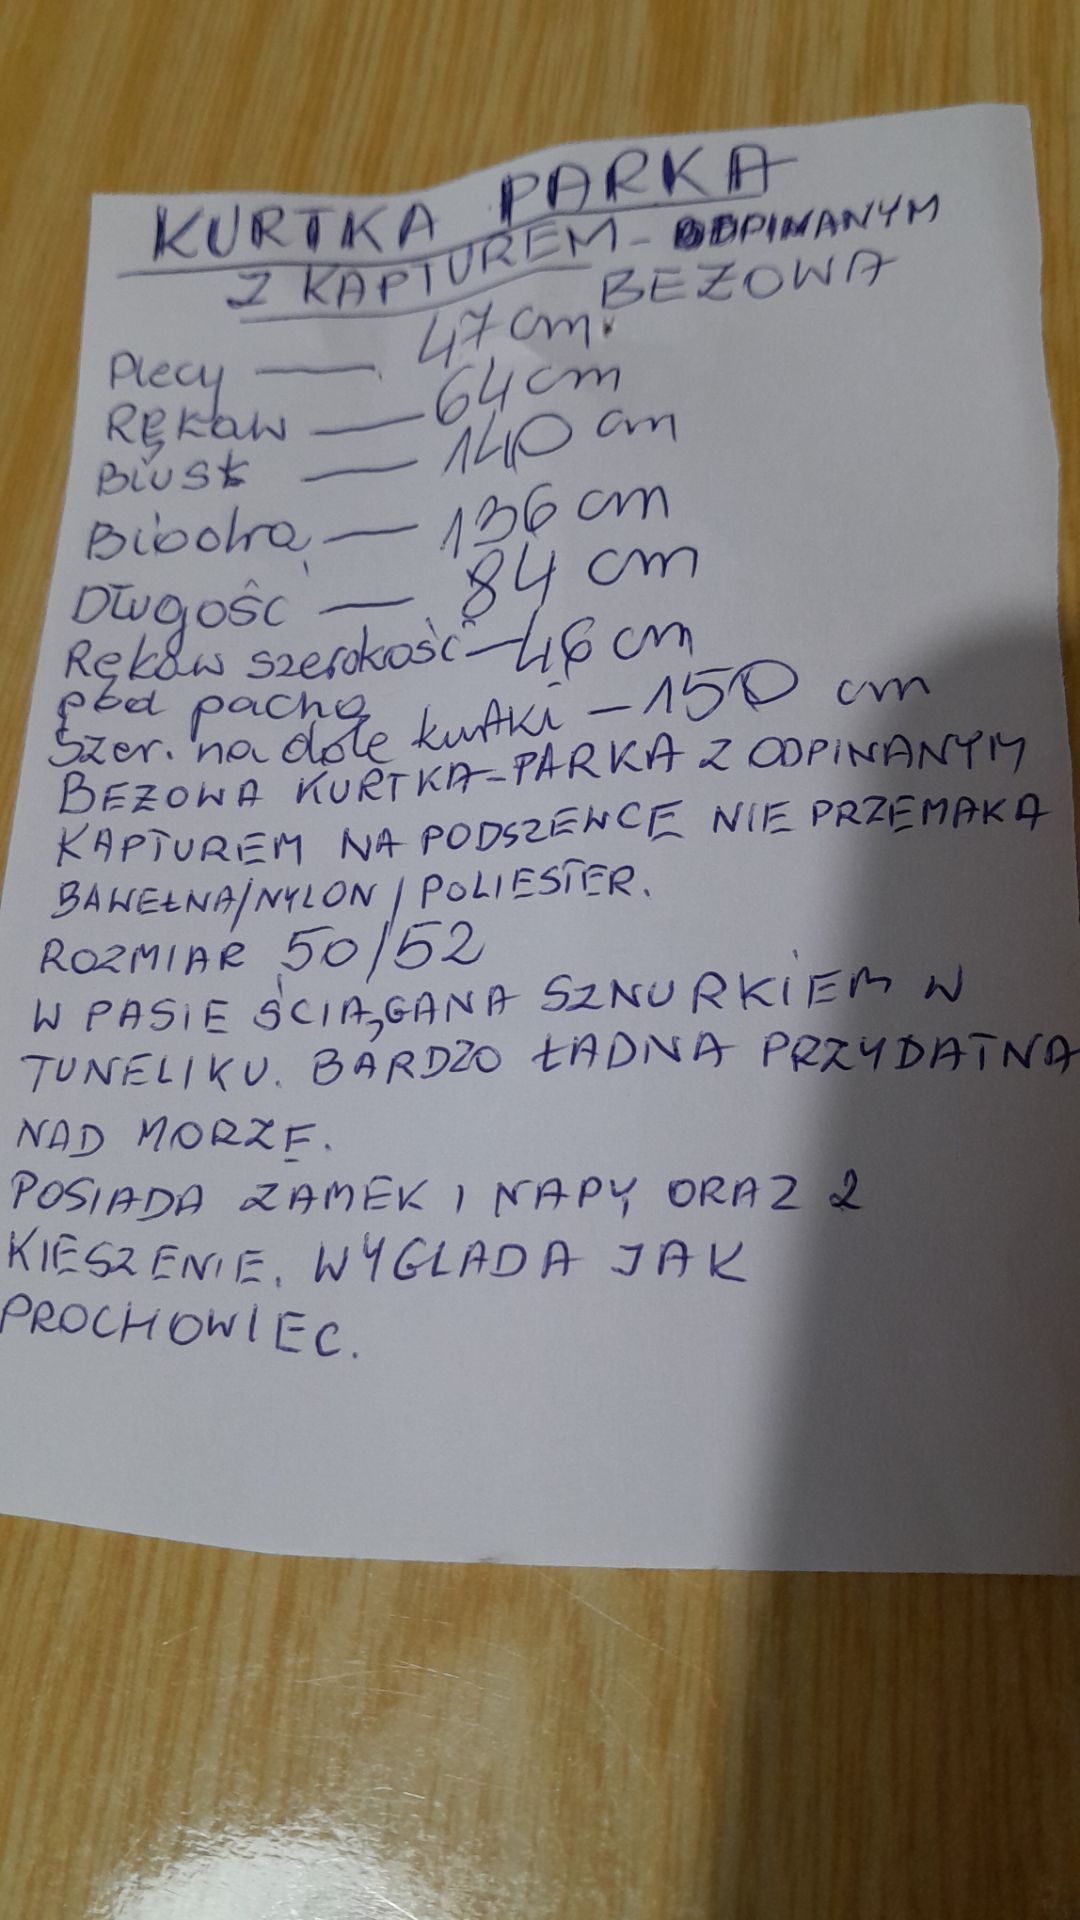 KURTKA PARKA
Z KAPTUREM - ODPINANYM
BEŻOWA
Plecy — 47 cm.
Rękaw — 64 cm
Biust — 140 cm
Biodra — 136 cm
Długość — 84 cm
Rękaw szerokość — 46 cm
pod pachą
Szer. na dole kurtki — 150 cm
BEŻOWA KURTKA-PARKA Z ODPINANYM
KAPTUREM NA PODSZEWCE NIE PRZEMAKA
BAWEŁNA/NYLON/POLIESTER.
ROZMIAR 50/52
W PASIE ŚCIĄGANA SZNURKIEM W
TUNELIKU. BARDZO ŁADNA PRZYDATNA
NAD MORZE.
POSIADA ZAMEK I NAPY ORAZ 2
KIESZENIE. WYGLADA JAK
PROCHOWIEC.